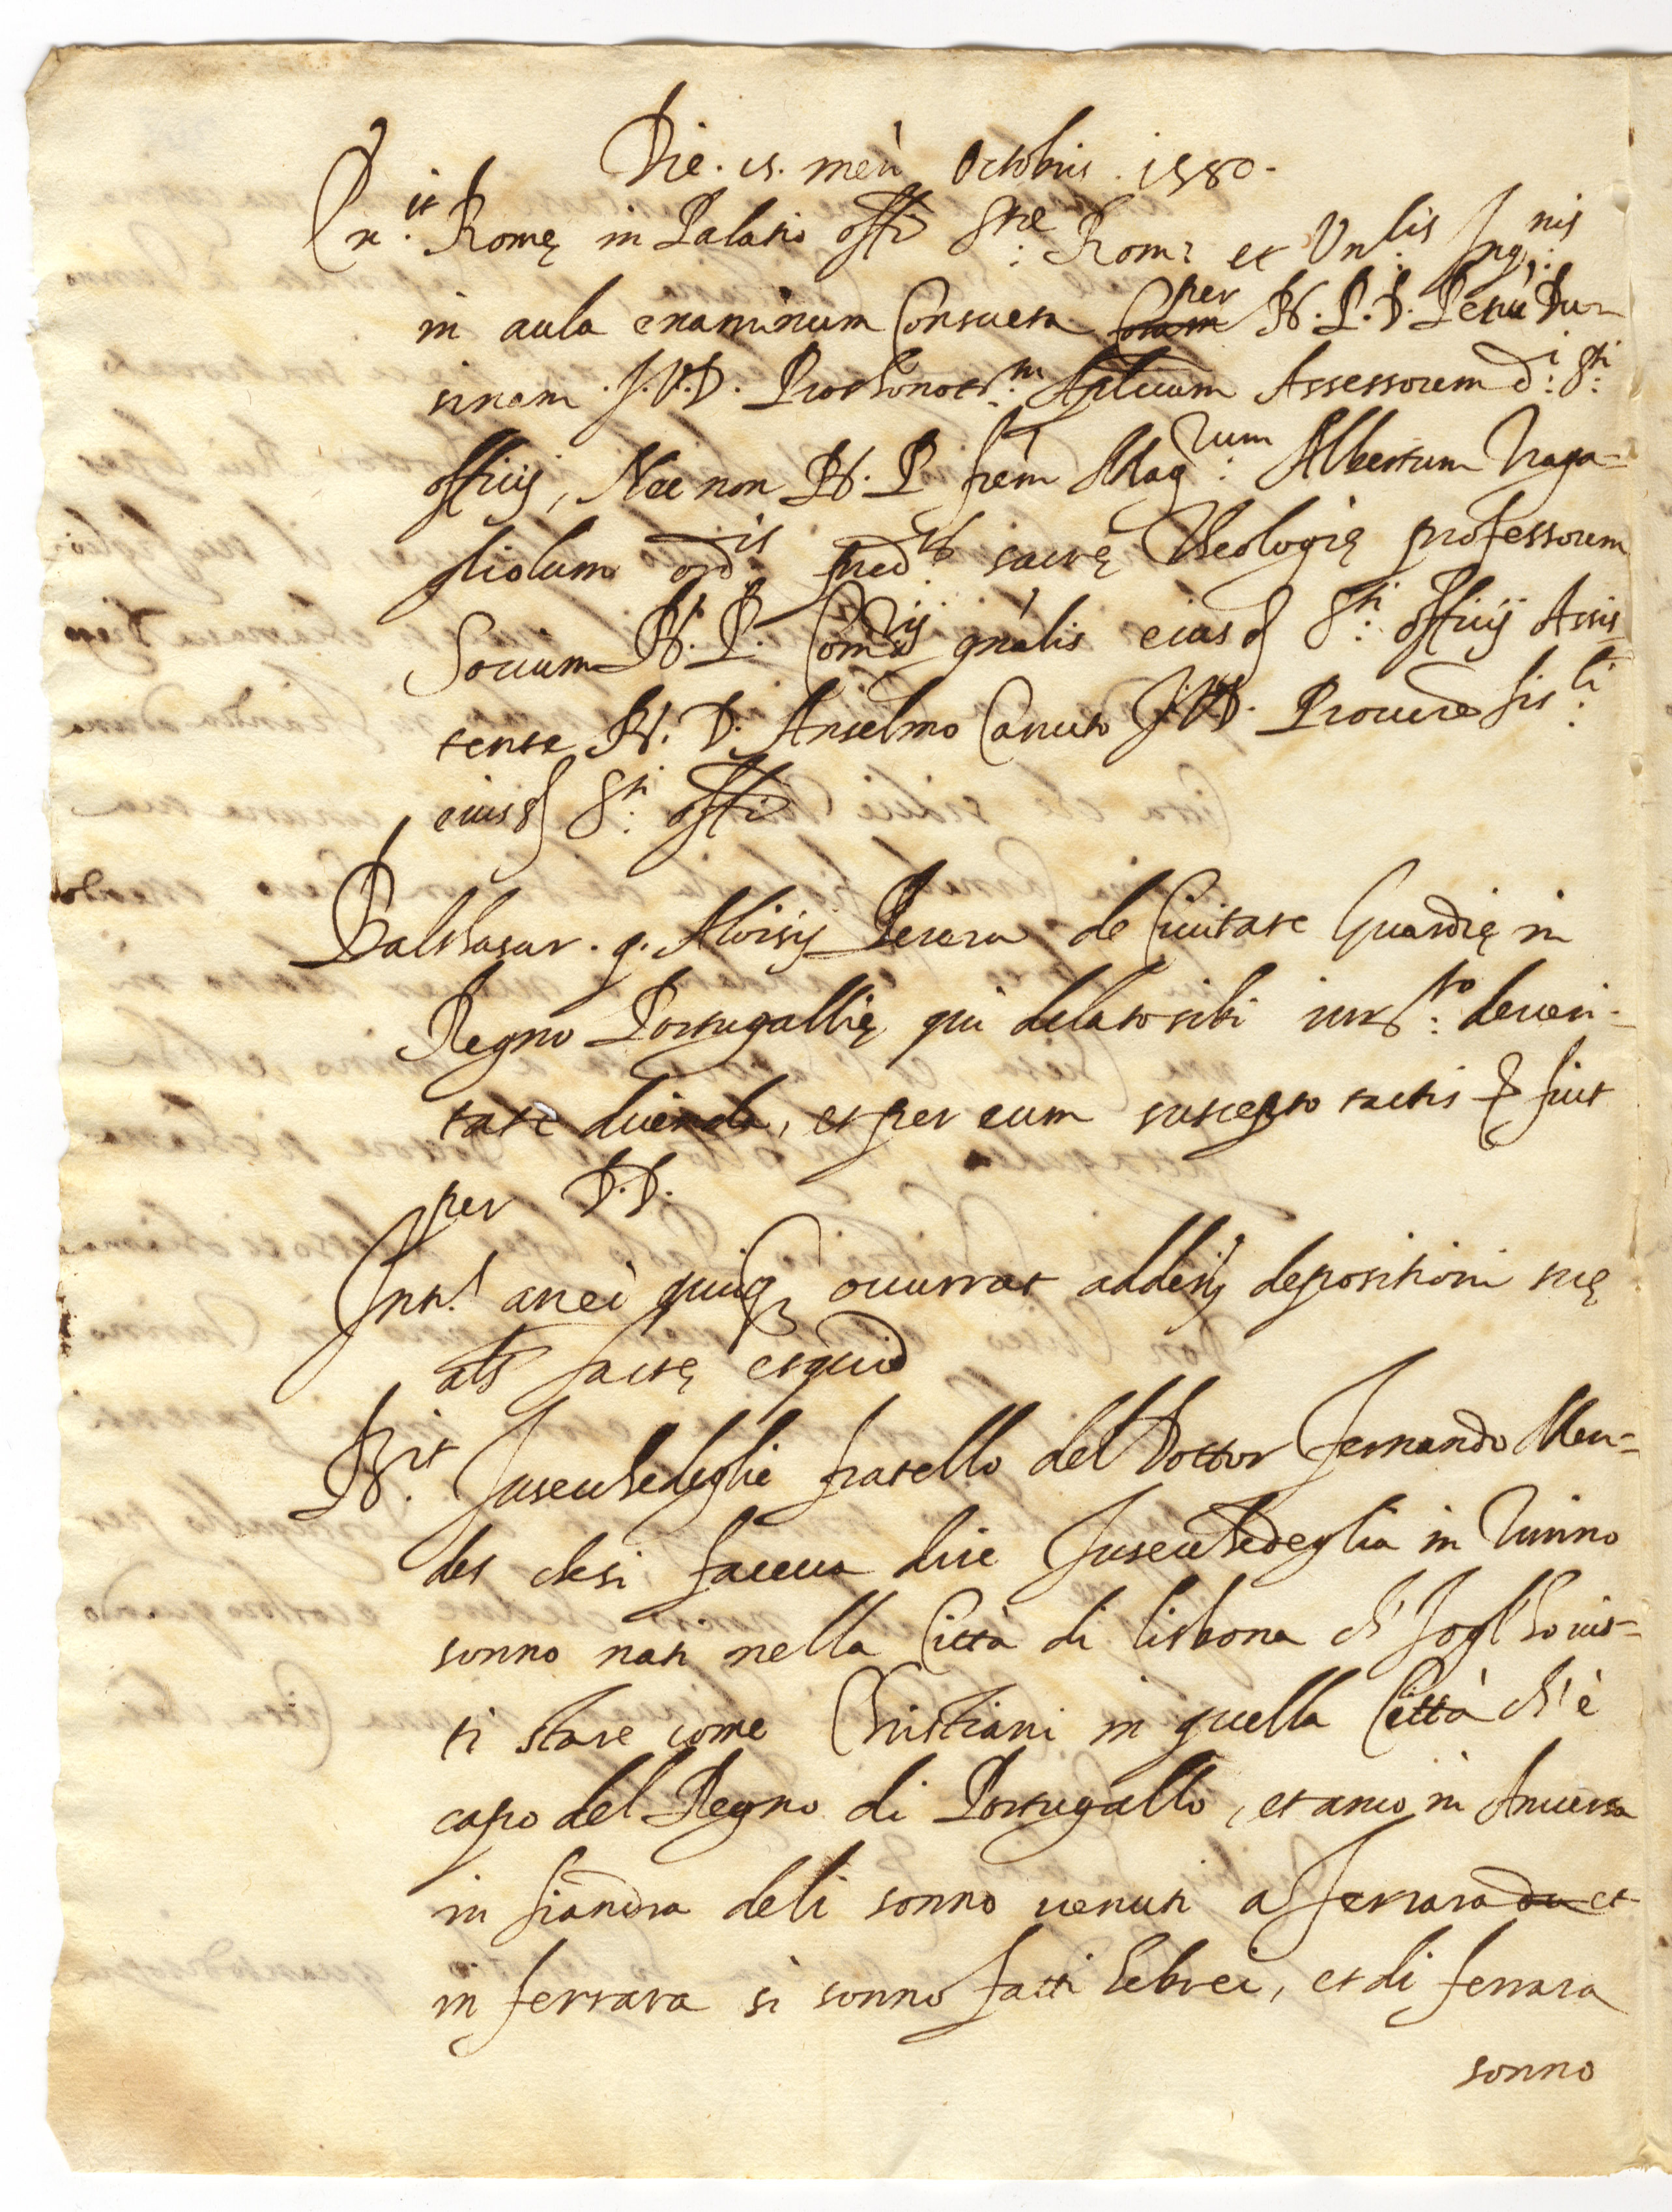 Die. 15. men Octobris. 1580.
Exit. Romę in Palatio offi Stæ: Rom: et Vnlis: Inqnis:
in aula examinum Consueta Coram per R. P. D. Petrū Dui-
sinam. J. V. D. Prothonotm: Aplicum Assessorem di: Sti:
officij, Nec non R. P. frēm Magrum: Albertum Draga-
gliolum ordis: pred: sacrę Theologię professorem
Socium R. P. Comrij gnālis eiusd Sti: officij Assis
tente R. D. Anselmo Canuto J. V. D. Procure fisli:
eiusd Sti: offi
Balthasar. q. Aloisij Perera de Ciuitate Guardię in
Regno Portugallię qui delato sibi iurto: de ueri-
tate dicenda, et per eum suscepto tactis & fuit
per D. D.
Intt. an ei quicq occurrat addere depositioni suę
als factę et quid
Rit. Jusef Sedeglie fratello del Dottor Fernando Men-
des che si faceua dire Jusef Sedeglia in
sonno nati nella Città di lisbona et
ti stare come Christiani in quella Città ch'è
capo del Regno di Portugallo, et anco in Anuersa
in fiandra de li sonno uenuti a Ferrara da et
in ferrara si sonno fatti hebrei, et di ferrara
sonno